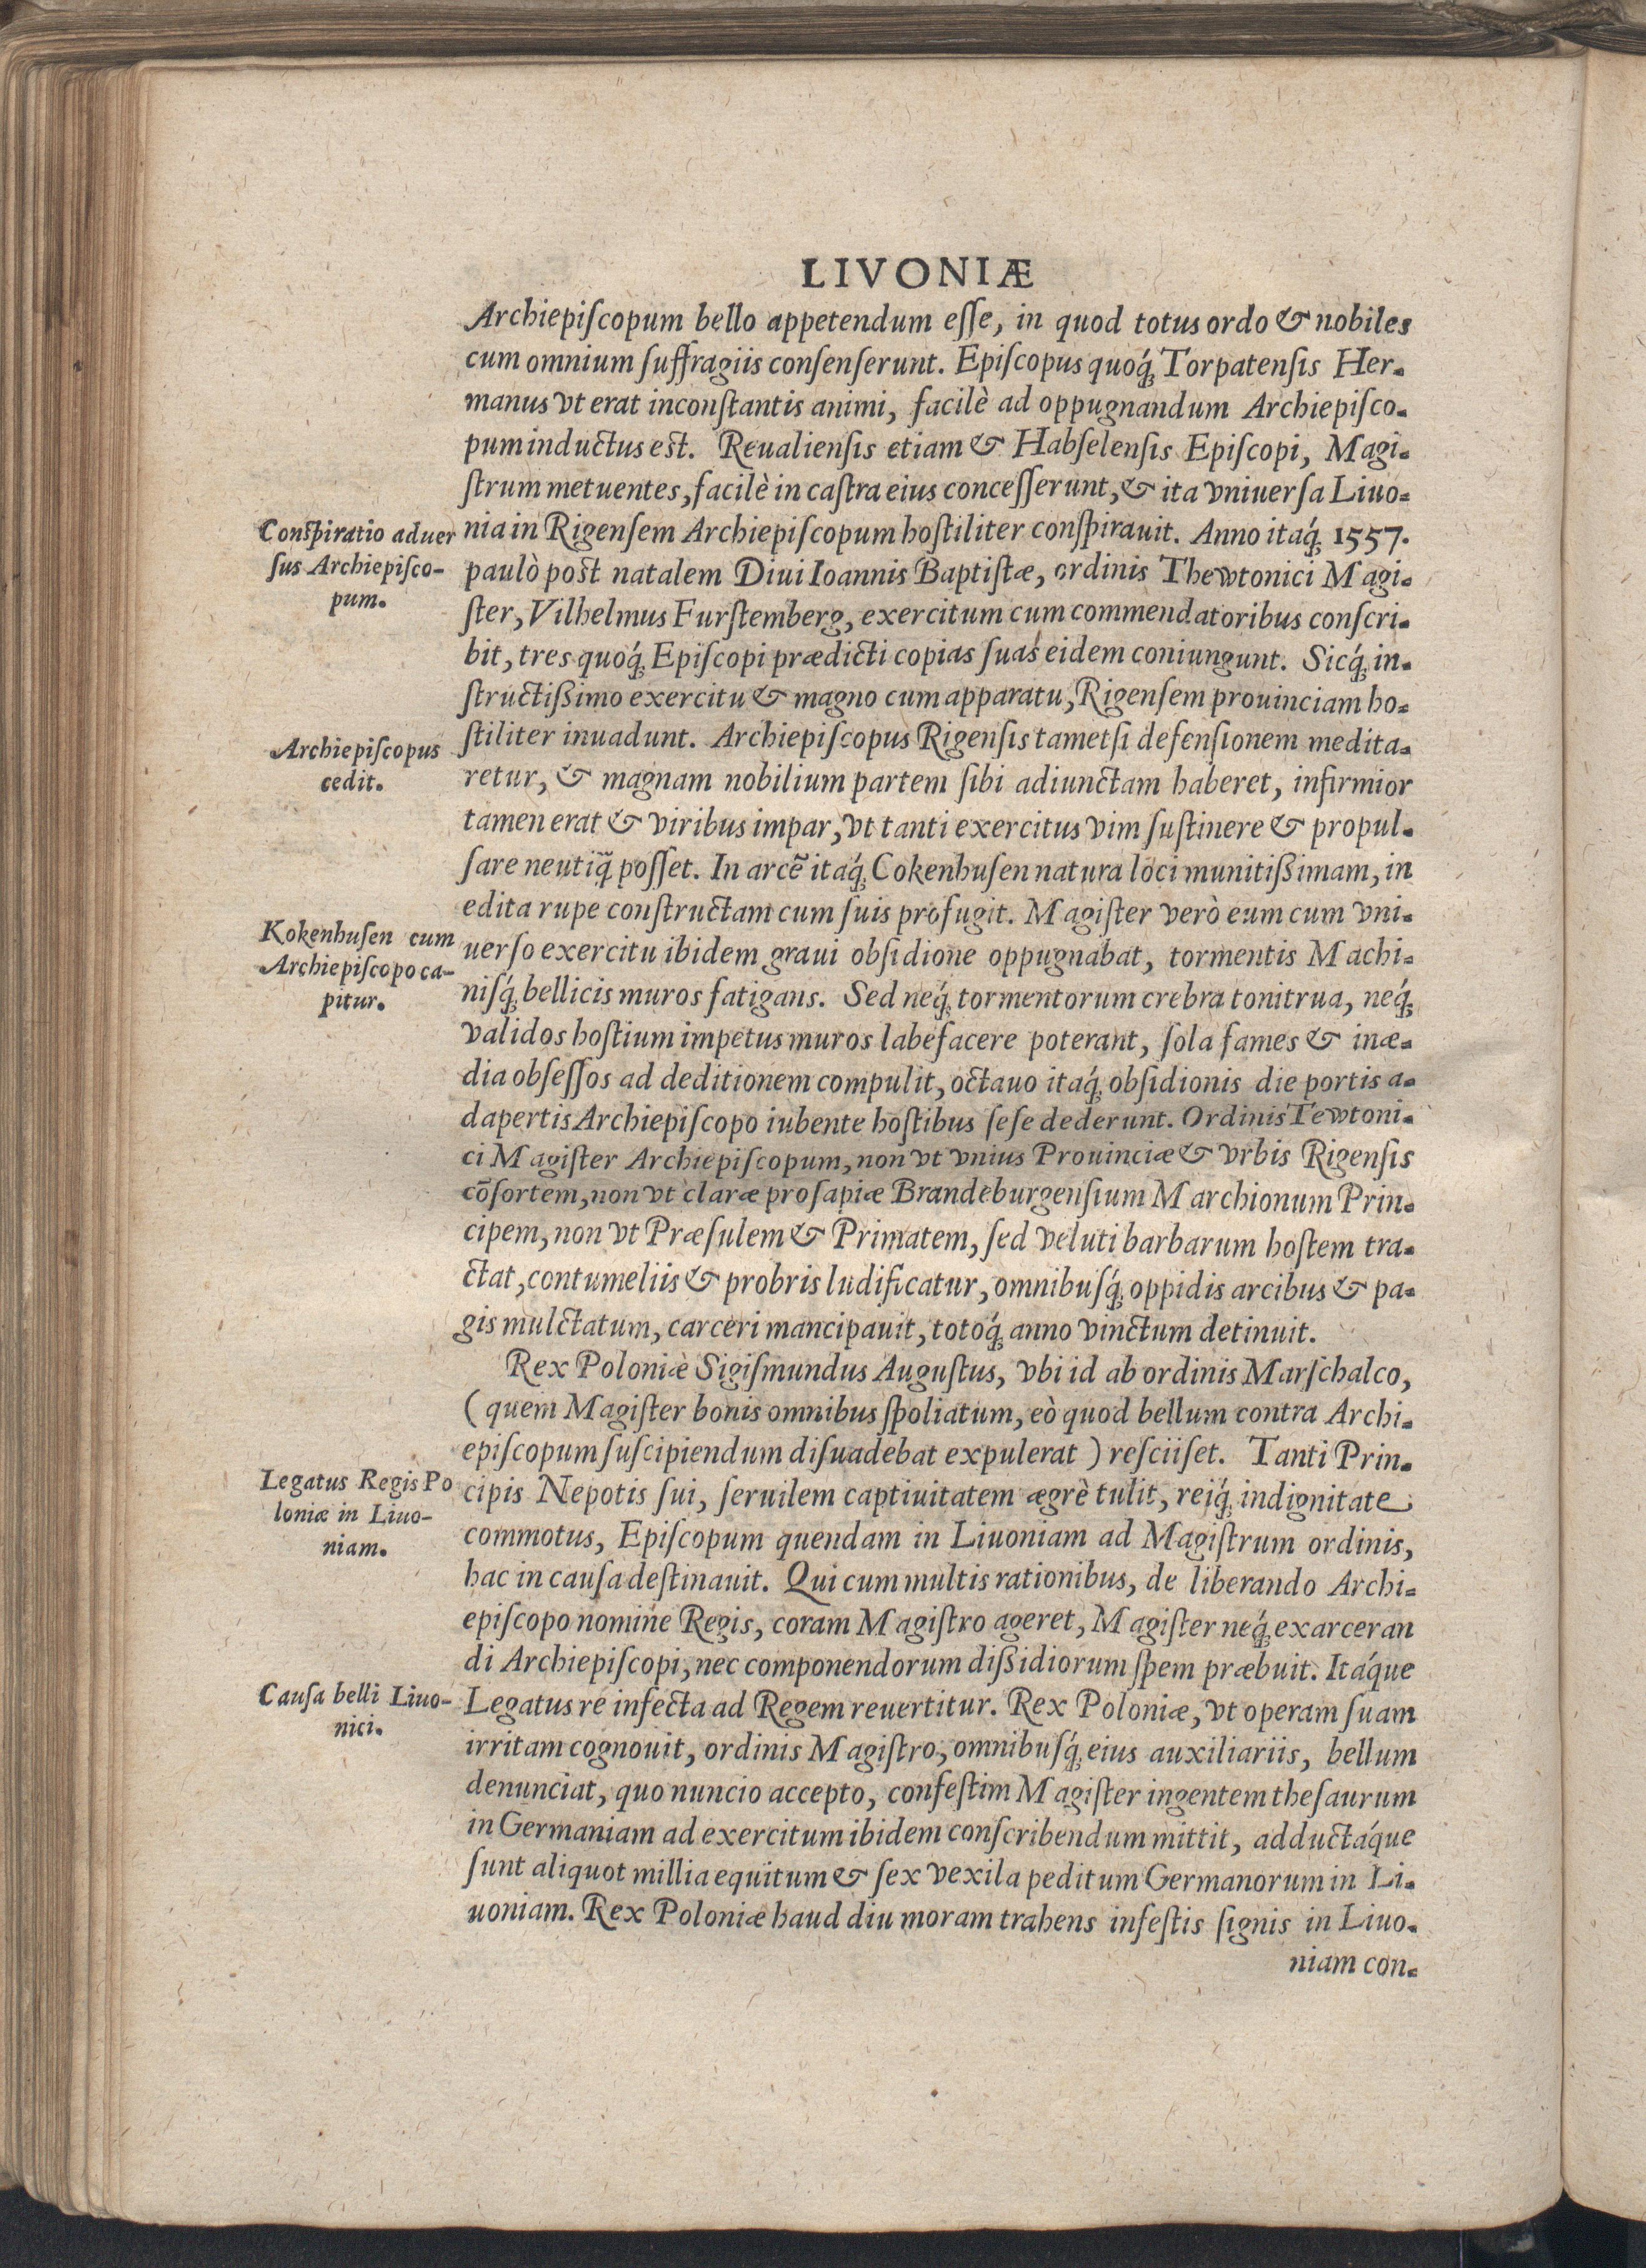 LIVONIÆ
Archiepiſcopum bello appetendum eſſe, in quod totus ordo & nobiles
cum omnium ſuffragiis conſenſerunt. Epiſcopus quoq́; Torpatenſis Her-
manus vt erat inconſtantis animi, facilè ad oppugnandum Archiepiſco-
pum inductus est. Reualienſis etiam & Habſelenſis Epiſcopi, Magi-
ſtrum metuentes, facilè in caſtra eius conceſſerunt, & ita vniuerſa Liuo-
Conſpiratio aduer
ſus Archiepiſco-
pum.
nia in Rigenſem Archiepiſcopum hoſtiliter conſpirauit. Anno itaq́; 1557.
paulò post natalem Diui Ioannis Baptiſtæ, ordinis Thewtonici Magi-
ſter, Vilhelmus Furſtemberg, exercitum cum commendatoribus conſcri-
bit, tres quoq́; Epiſcopi prædicti copias ſuas eidem coniungunt. Sicq́; in-
ſtructißimo exercitu & magno cum apparatu, Rigenſem prouinciam ho-
Archiepiſcopus
cedit.
ſtiliter inuadunt. Archiepiſcopus Rigenſis tametſi defenſionem medita-
retur, & magnam nobilium partem ſibi adiunctam haberet, infirmior
tamen erat & viribus impar, vt tanti exercitus vim ſuſtinere & propul-
ſare neutiq̃; poſſet. In arcẽ itaq́; Cokenhuſen natura loci munitißimam, in
edita rupe conſtructam cum ſuis profugit. Magiſter verò eum cum vni-
Kokenhuſen cum
Archiepiſcopo ca-
pitur.
uerſo exercitu ibidem graui obſidione oppugnabat, tormentis Machi-
niſq́; bellicis muros fatigans. Sed neq́; tormentorum crebra tonitrua, neq́;
validos hoſtium impetus muros labefacere poterant, ſola fames & inæ-
dia obſeſſos ad deditionem compulit, octauo itaq́; obſidionis die portis a-
dapertis Archiepiſcopo iubente hoſtibus ſeſe dederunt. Ordinis Tewtoni-
ci Magiſter Archiepiſcopum, non vt vnius Prouinciæ & vrbis Rigenſis
cõſortem, non vt claræ proſapiæ Brandeburgenſium Marchionum Prin-
cipem, non vt Præſulem & Primatem, ſed veluti barbarum hoſtem tra-
ctat, contumeliis & probris ludificatur, omnibuſq́; oppidis arcibus & pa-
gis mulctatum, carceri mancipauit, totoq́; anno vinctum detinuit.
Rex Poloniæ Sigiſmundus Auguſtus, vbi id ab ordinis Marſchalco,
( quem Magiſter bonis omnibus ſpoliatum, eò quod bellum contra Archi-
epiſcopum ſuſcipiendum diſuadebat expulerat ) reſciiſet. Tanti Prin-
Legatus Regis Po
loniæ in Liuo-
niam.
cipis Nepotis ſui, ſeruilem captiuitatem ægrè tulit, reiq́; indignitate
commotus, Epiſcopum quendam in Liuoniam ad Magiſtrum ordinis,
hac in cauſa deſtinauit. Qui cum multis rationibus, de liberando Archi-
epiſcopo nomine Regis, coram Magiſtro ageret, Magiſter neq́; exarceran
di Archiepiſcopi, nec componendorum dißidiorum ſpem præbuit. Itáque
Cauſa belli Liuo-
nici.
Legatus re infecta ad Regem reuertitur. Rex Poloniæ, vt operam ſuam
irritam cognouit, ordinis Magiſtro, omnibuſq́; eius auxiliariis, bellum
denunciat, quo nuncio accepto, confeſtim Magiſter ingentem theſaurum
in Germaniam ad exercitum ibidem conſcribendum mittit, adductáque
ſunt aliquot millia equitum & ſex vexila peditum Germanorum in Li-
uoniam. Rex Poloniæ haud diu moram trahens infeſtis ſignis in Liuo-
niam con-